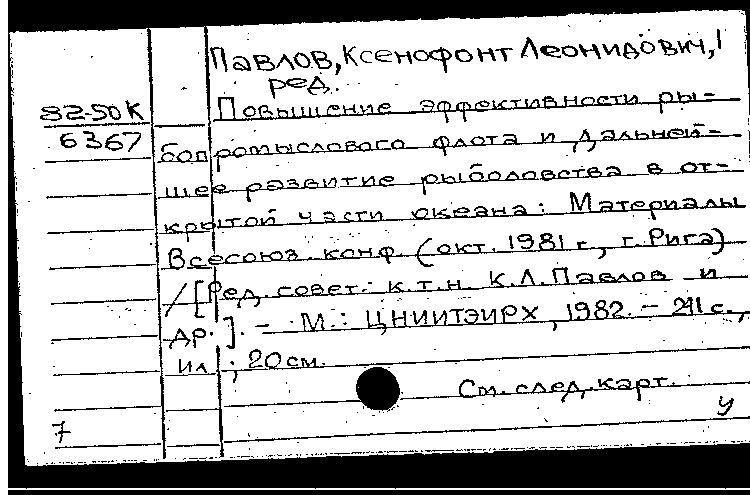 Павлов, Ксенофонт Леонидович,
ред.
82-50К Повышение эффективности ры-
6367 бопромыслового флота и дальней-
шее развитие рыболовства в от-
крытой части океана: Материалы
Всесоюз. конф. (окт. 1981 г., г. Рига)
/[Ред. совет.: к.т.н. К.Л. Павлов и
др.]. – М.: ЦНИИТЭИРХ, 1982. – 211 с.,
ил.; 20 см.
См. след. карт.
У
7